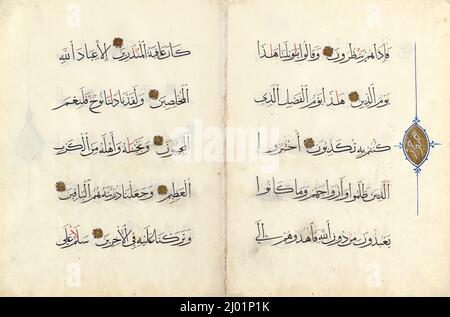 فإذا هم ينظرون وقالوا يويلنا هذا
يوم الدين هذا يوم الفصل الذي
كنتم به تكذبون احشروا
الذين ظلموا وأزواجهم وما كانوا
يعبدون من دون الله فاهدوهم إلى
كان عاقبة المنذرين إلا عباد الله
المخلصين ولقد نادانا نوح فلنعم
المجيبون ونجيناه وأهله من الكرب
العظيم وجعلنا ذريته هم الباقين
وتركنا عليه في الآخرين سلام على
alamy
Image ID: 2J01P1K
www.alamy.com